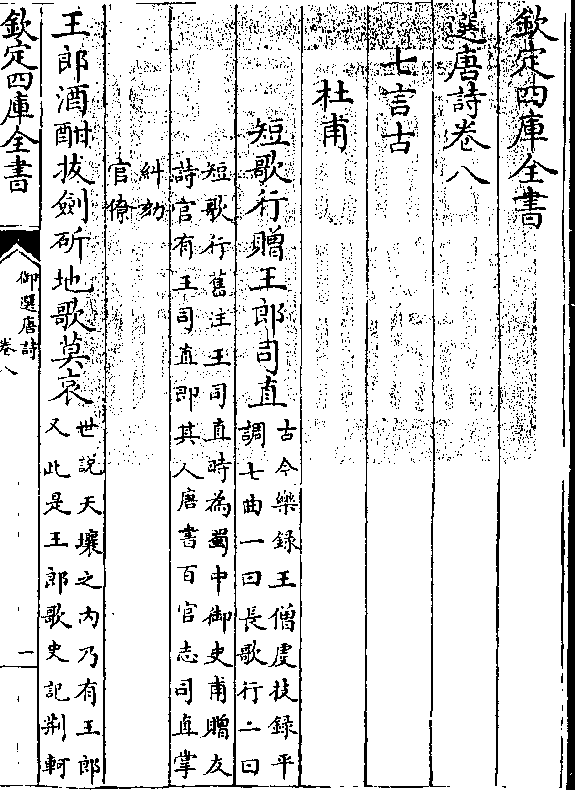 欽定四庫全書
選唐詩卷八
七言古
杜甫
短歌行贈王郎司直古今樂錄王僧虔技錄平
調七曲一曰長歌行二曰
短歌行舊注王司直時為蜀中御史甫贈友
詩言有王司直即其人唐書百官志司直掌
糾劾
官僚
王郎酒酣拔劍斫地歌莫哀世說天壤之內乃有王郎
又此是王郎歌史記荆軻
欽定四庫全書
御選唐詩
卷八
一